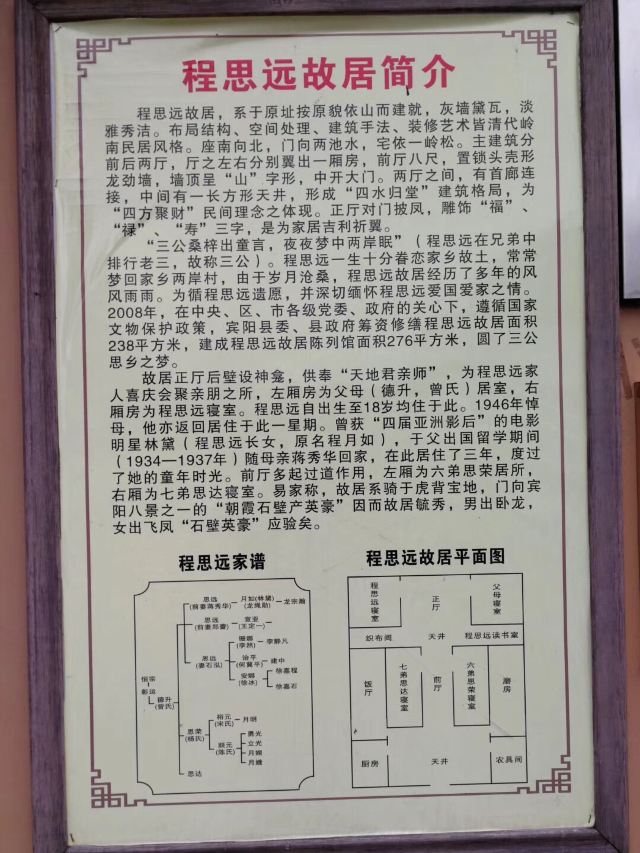 程思远故居简介
程思远故居，系于原址按原貌依山而建就，灰墙黛瓦，淡
雅秀洁。布局结构、空间处理、建筑手法、装修艺术皆清代岭
南民居风格。座南向北，门向两池水，宅依一岭松。主建筑分
前后两厅，厅之左右分别翼出一厢房，前厅八尺，置锁头壳形
龙劲墙，墙顶呈“山”字形，中开大门。两厅之间，有首廊连
接，中间有一长方形天井，形成“四水归堂”建筑格局，为
“四方聚财”民间理念之体现。正厅对门披凤，雕饰“福”、
“禄”、“寿”三字，是为家居吉利祈翼。
“三公桑梓出童言，夜夜梦中两岸眠”（程思远在兄弟中
排行老三，故称三公）。程思远一生十分眷恋家乡故土，常常
梦回家乡两岸村，由于岁月沧桑，程思远故居经历了多年的风
风雨雨。为循程思远遗愿，并深切缅怀程思远爱国爱家之情。
2008年，在中央、区、市各级党委、政府的关心下，遵循国家
文物保护政策，宾阳县委、县政府筹资修缮程思远故居面积
238平方米，建成程思远故居陈列馆面积276平方米，圆了三公
思乡之梦。
故居正厅后壁设神龛，供奉“天地君亲师”，为程思远家
人喜庆会聚亲朋之所，左厢房为父母（德升，曾氏）居室，右
厢房为程思远寝室。程思远自出生至18岁均住于此。1946年悼
母，他亦返回居住于此一星期。曾获“四届亚洲影后”的电影
明星林黛（程思远长女，原名程月如），于父出国留学期间
（1934—1937年）随母亲蒋秀华回家，在此居住了三年，度过
了她的童年时光。前厅多起过道作用，左厢为六弟思荣居所，
右厢为七弟思达寝室。易家称，故居系骑于虎背宝地，门向宾
阳八景之一的“朝霞石壁产英豪”因而故居毓秀，男出卧龙，
女出飞凤“石壁英豪”应验矣。
程思远家谱
思远
(前妻蒋秀华)
月如(林黛)
(龙绳勋)
龙宗瀚
思远
(前妻邓蕾)
宣亚
(王定一)
恒宗
彰运
德升
(曾氏)
思远
(妻石泓)
珊娜
(李然)
李静凡
治平
(何冀平)
建中
安娜
(徐冰)
徐嘉程
徐嘉石
思荣
(杨氏)
裕元
(宋氏)
月明
(陈氏)
勇光
立光
月娴
月嫌
思达
程思远故居平面图
程思远寝室
正厅
父母寝室
织布阁
天井
程思远读书室
饭厅
七弟思达寝室
前厅
六弟思荣寝室
磨房
厨房
天井
农具间